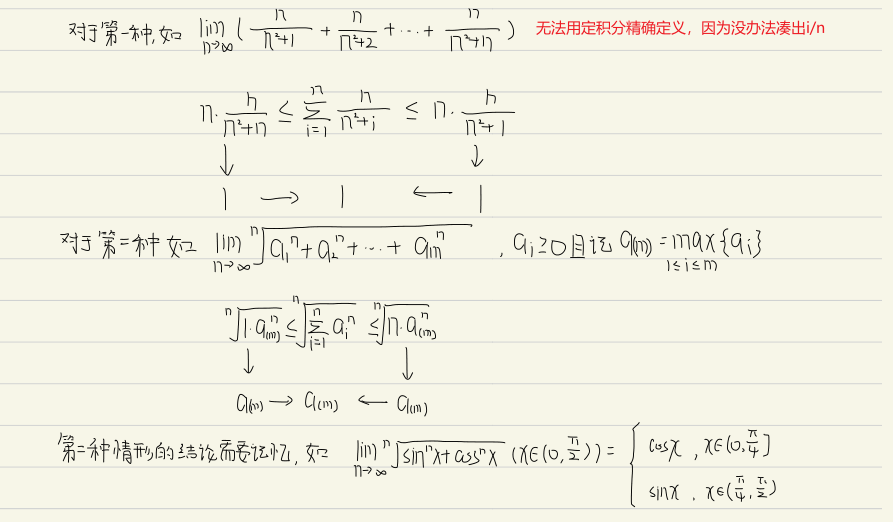 对于第一种,如 lim n→∞ ( n/(n²+1) + n/(n²+2) + ⋯ + n/(n²+n) ) 无法用定积分精确定义，因为没办法凑出i/n
n · n/(n²+n) ≤ ∑_{i=1}^{n} n/(n²+i) ≤ n · n/(n²+1)
↓ ↓
1 → 1 ← 1
对于第二种 如 lim n→∞ ⁿ√(a₁ⁿ + a₂ⁿ + ⋯ + aₘⁿ) , aᵢ ≥ 0 且记 a₍ₘ₎ = max_{1≤i≤m} {aᵢ}
ⁿ√(1·a₍ₘ₎ⁿ) ≤ ⁿ√(∑_{i=1}^{n} aᵢⁿ) ≤ ⁿ√(n·a₍ₘ₎ⁿ)
↓ ↓
a₍ₘ₎ → a₍ₘ₎ ← a₍ₘ₎
第二种情形的结论需要记忆, 如 lim n→∞ ⁿ√(sinⁿx + cosⁿx) (x∈(0, π/2)) = { cosx , x∈(0, π/4]
sinx , x∈(π/4, π/2)